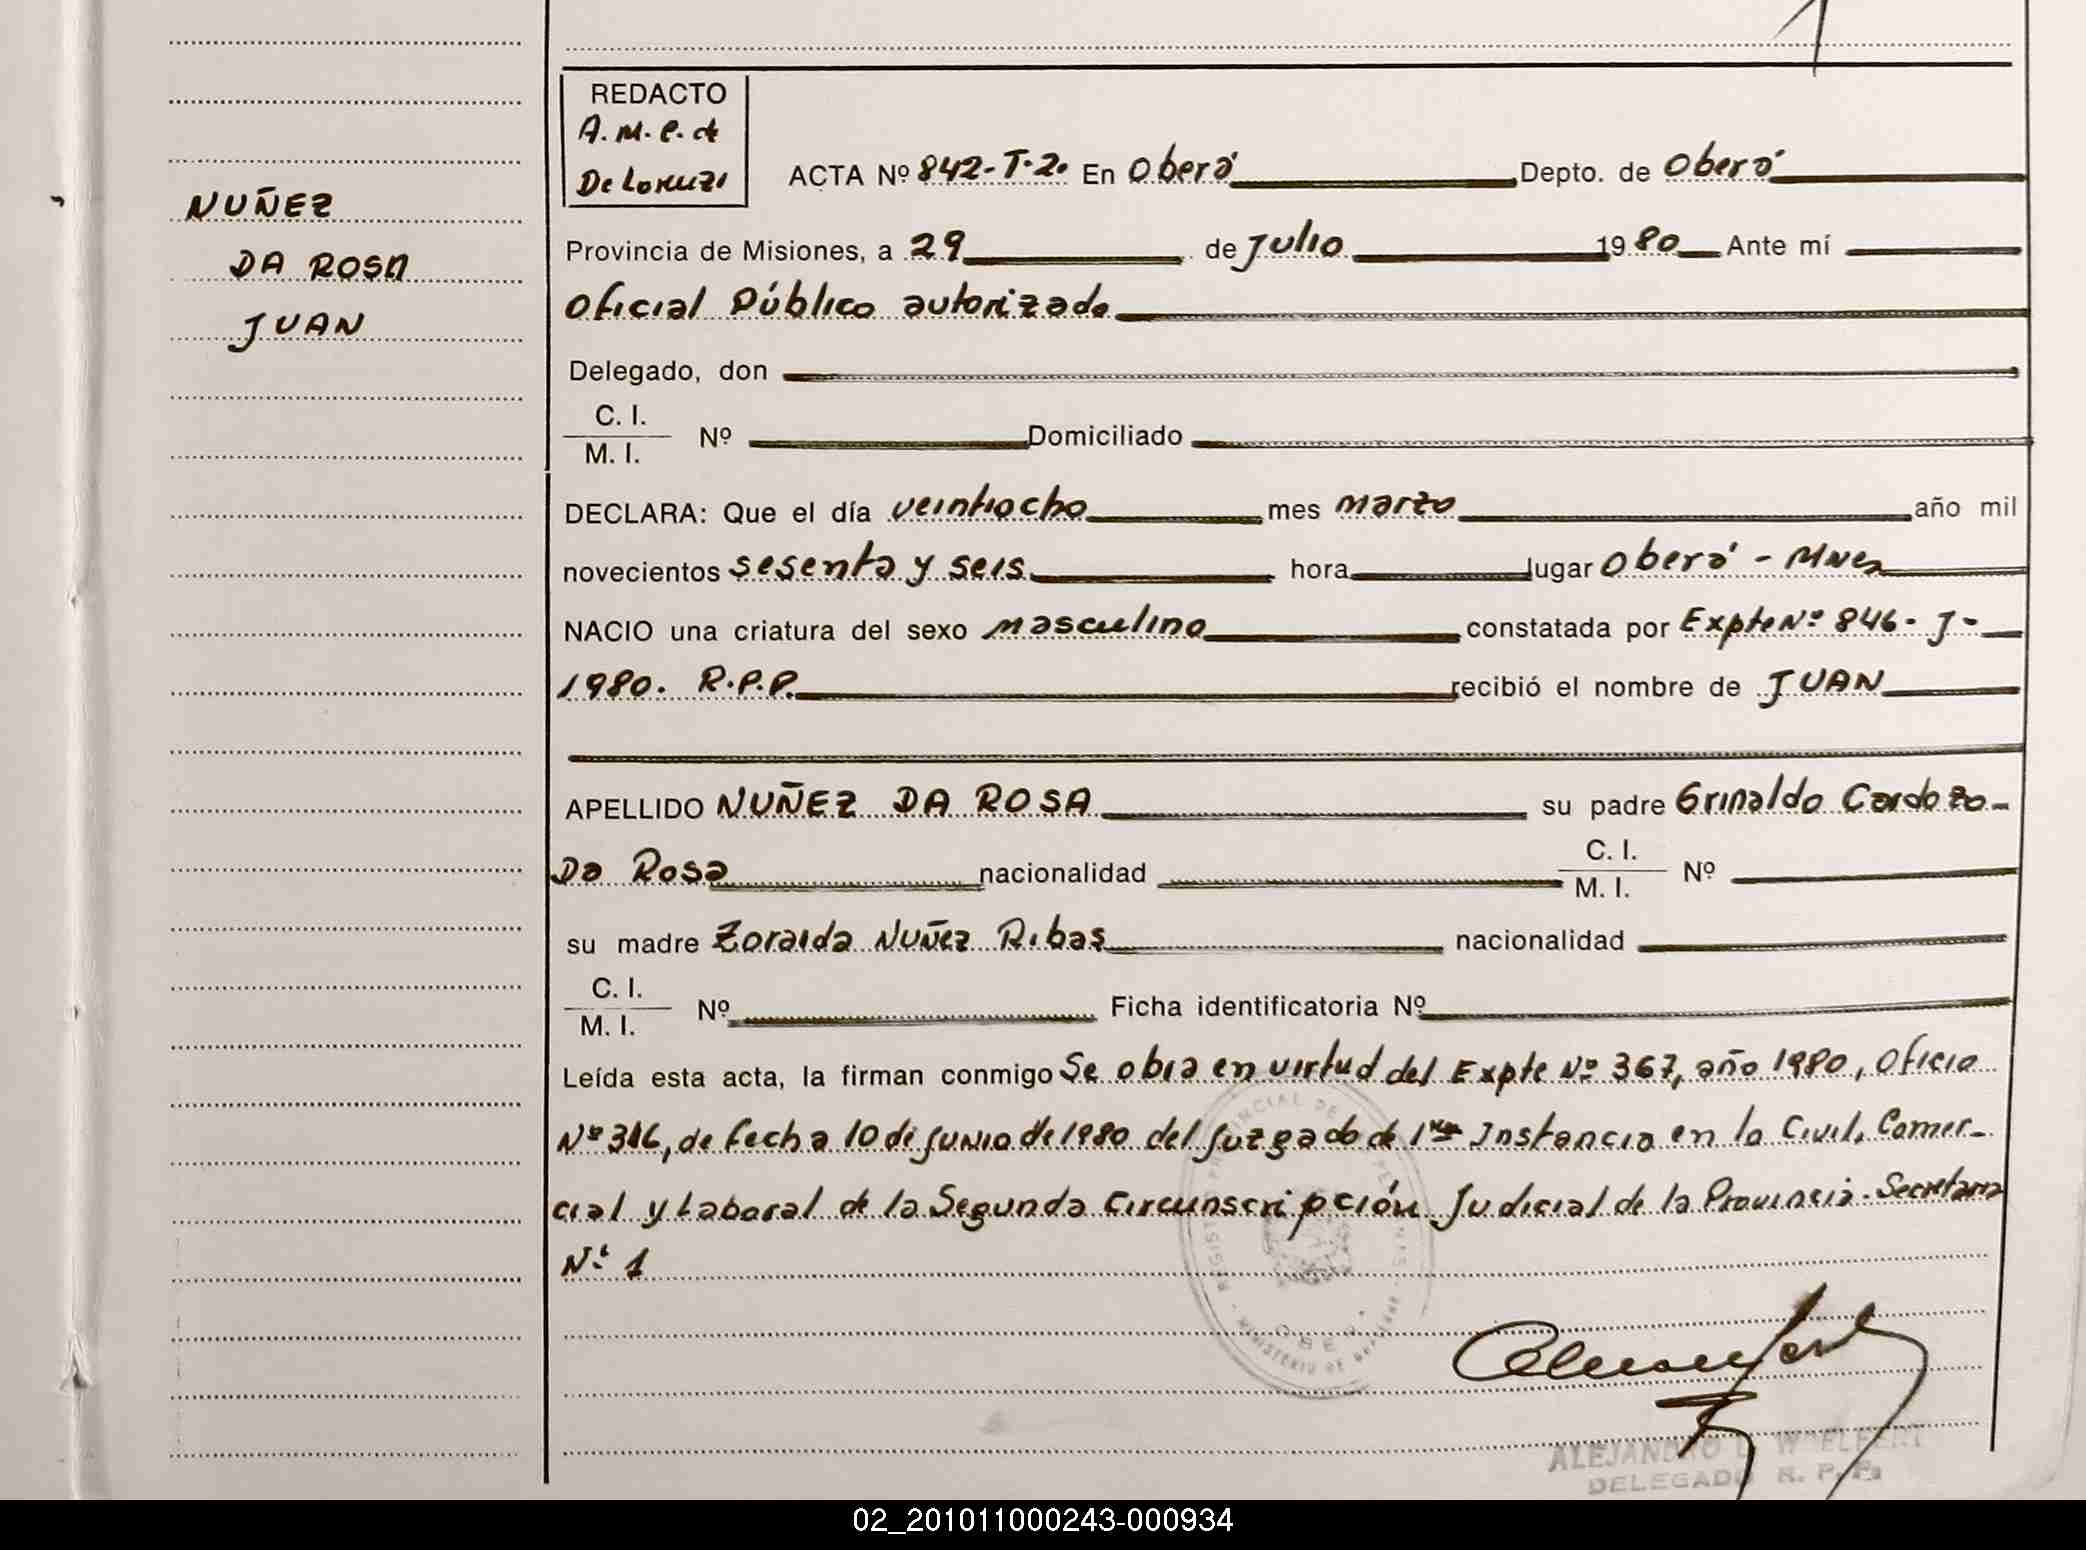 REDACTO
A. M. C. de
De Lorenzi
ACTA Nº 842-T-2. En Oberá Depto. de Oberá
NUÑEZ
DA ROSA
JUAN
Provincia de Misiones, a 29 de Julio 1980 Ante mí
Oficial Público autorizado
Delegado, don
C. I.
M. I. Nº Domiciliado
DECLARA: Que el día veintiocho mes marzo año mil
novecientos sesenta y seis hora lugar Oberá - Mnes
NACIO una criatura del sexo masculino constatada por Expte Nº 846- J-
1980. R.P.P. recibió el nombre de JUAN
APELLIDO NUÑEZ DA ROSA su padre Grinaldo Cardozo-
Da Rosa nacionalidad C. I.
M. I. Nº
su madre Zoraida Nuñez Ribas nacionalidad
C. I.
M. I. Nº Ficha identificatoria Nº
Leída esta acta, la firman conmigo Se obra en virtud del Expte Nº 367, año 1980, Oficio
Nº 316, de fecha 10 de junio de 1980 del Juzgado de 1ra Instancia en lo Civil, Comer-
cial y Laboral de la Segunda Circunscripción Judicial de la Provincia. Secretaria
Nº 1
ALEJANDRO
DELEGADO R. P. P.
02_201011000243-000934